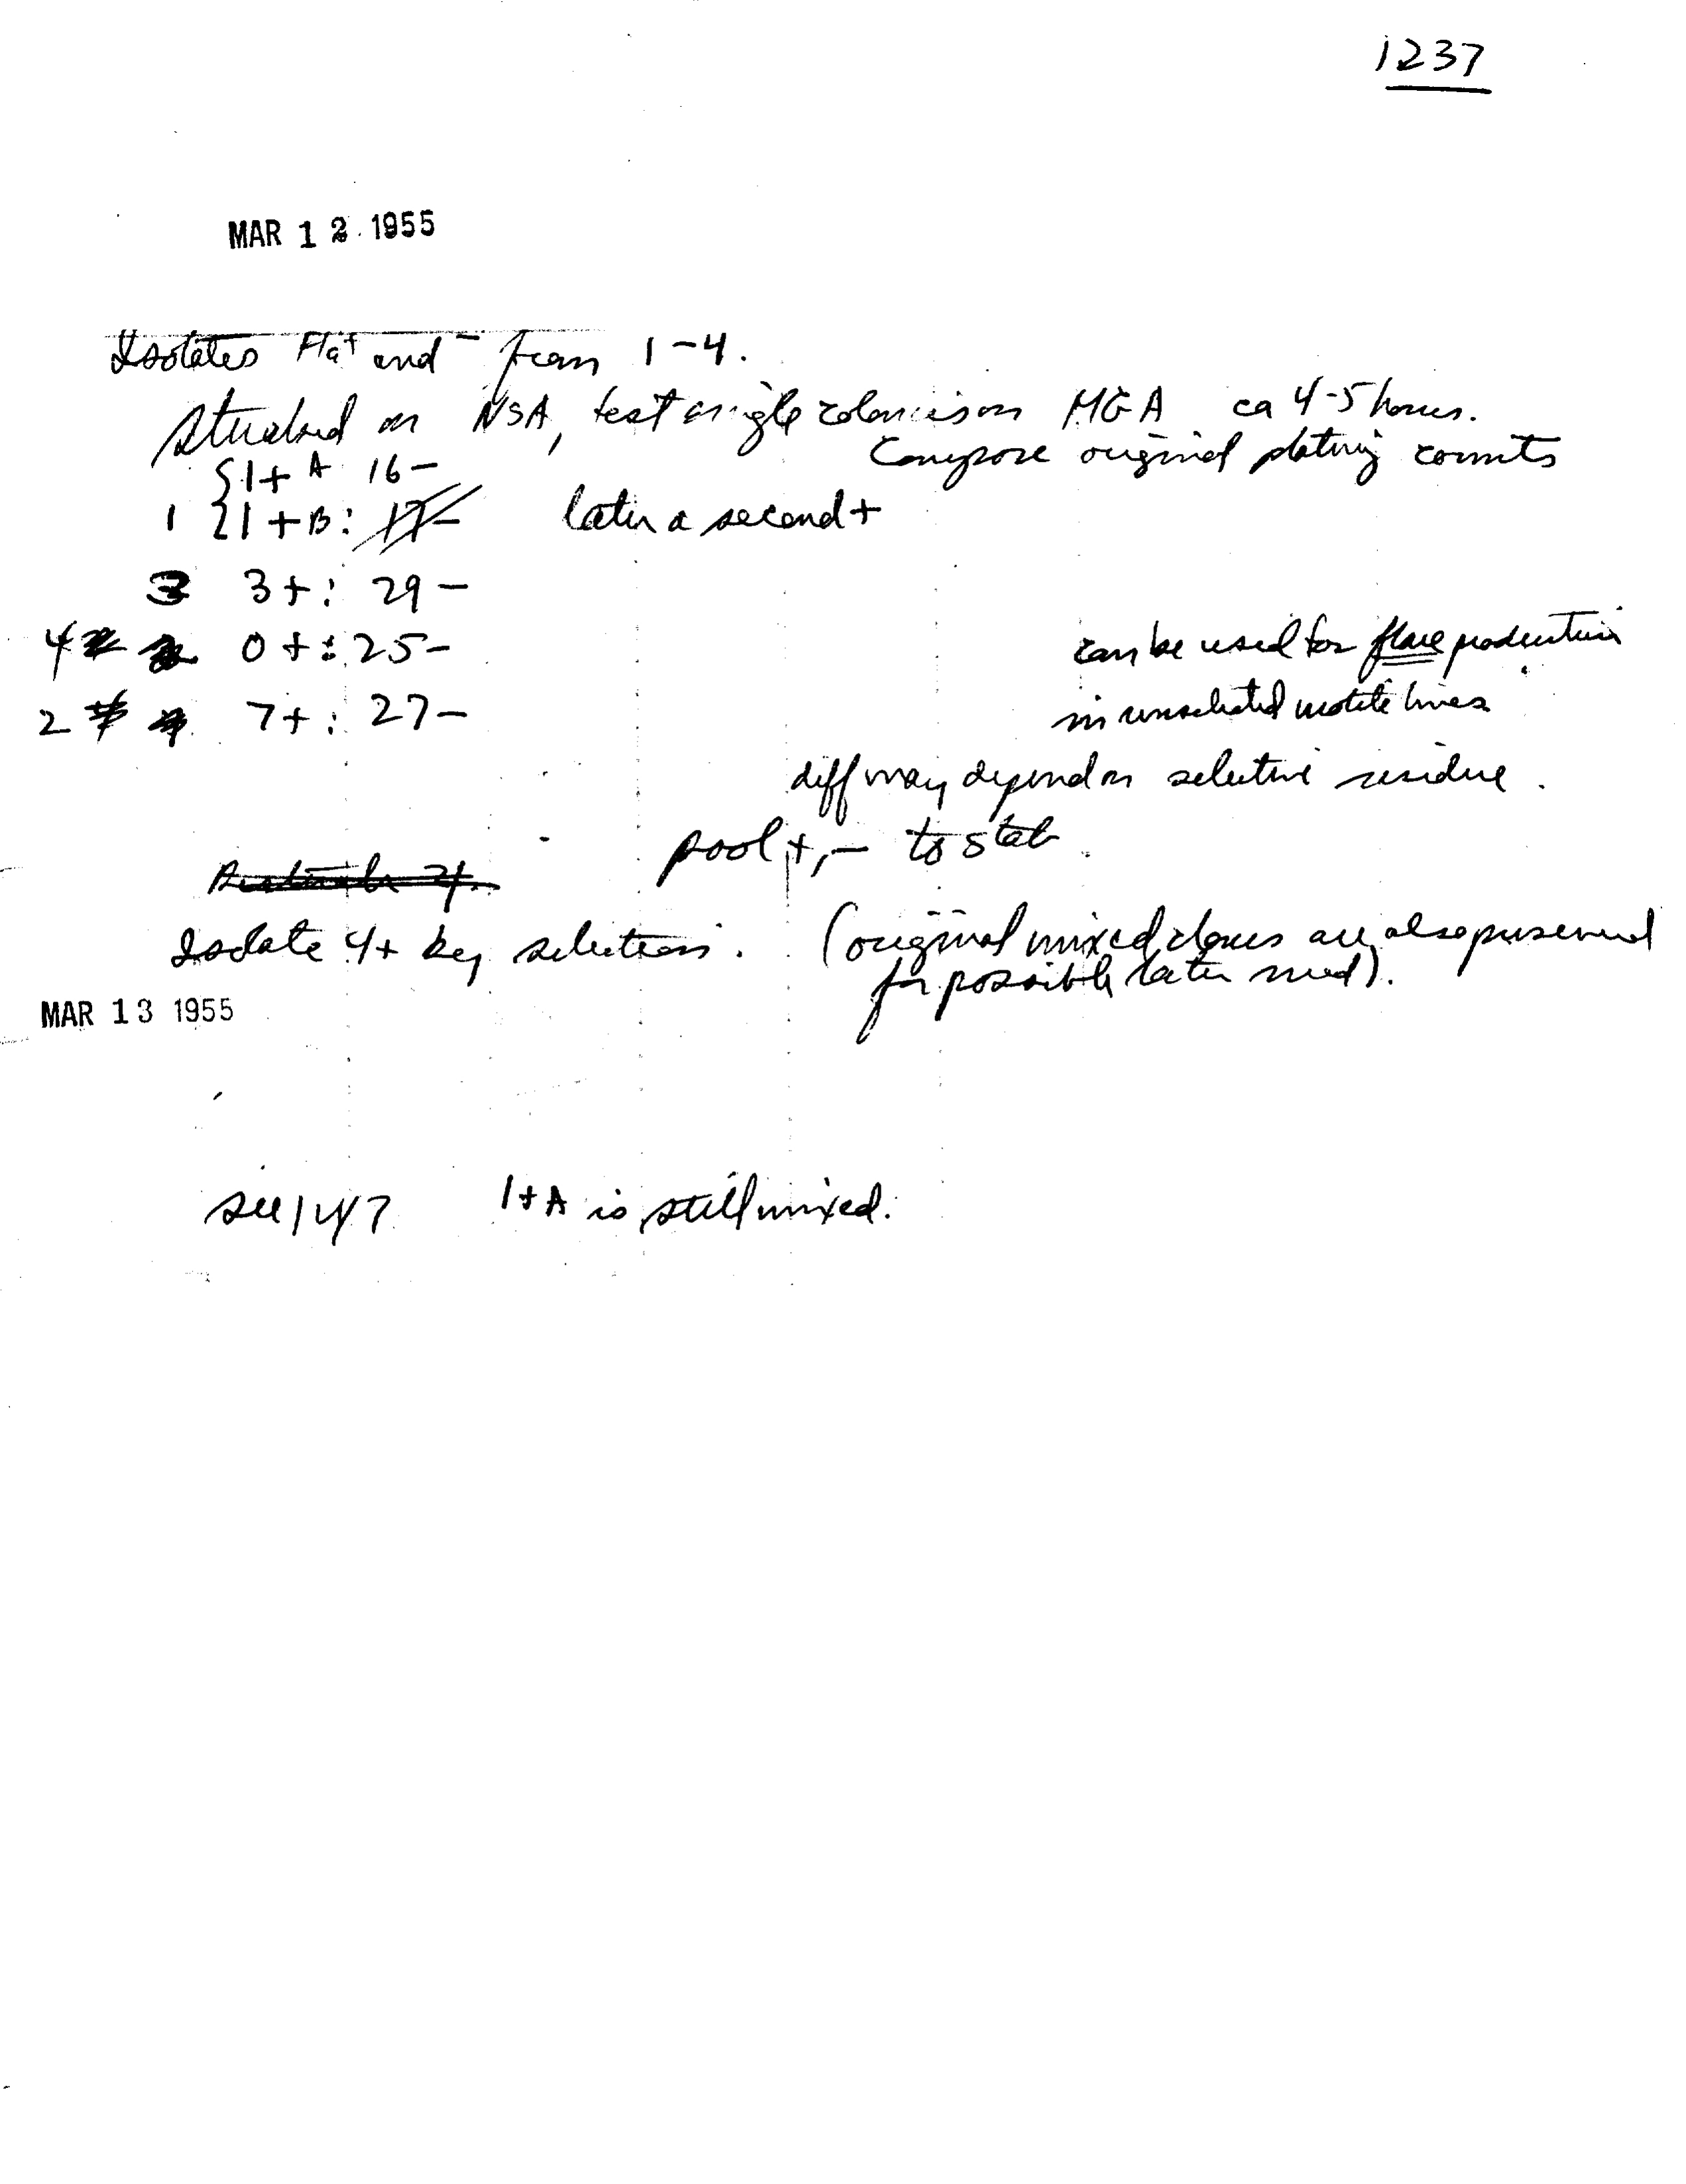 1237
MAR 12 1955
Isolates Fla+ and - from 1-4.
Streaked on NSA, test single colonies on MGA ca 4-5 hours.
Compare original plating counts
{1+ A 16-
1 {1+B: 17- later a second +
3 3+: 29-
4 0+: 25-
can be used for flare production
2 7+: 27-
in unselected motile lines
diff may depend on selective residue.
pool +, - to stab
Isolate 4+ by selection. (original mixed clones are also preserved
for possible later need).
MAR 13 1955
see 1247 1+A is still mixed.